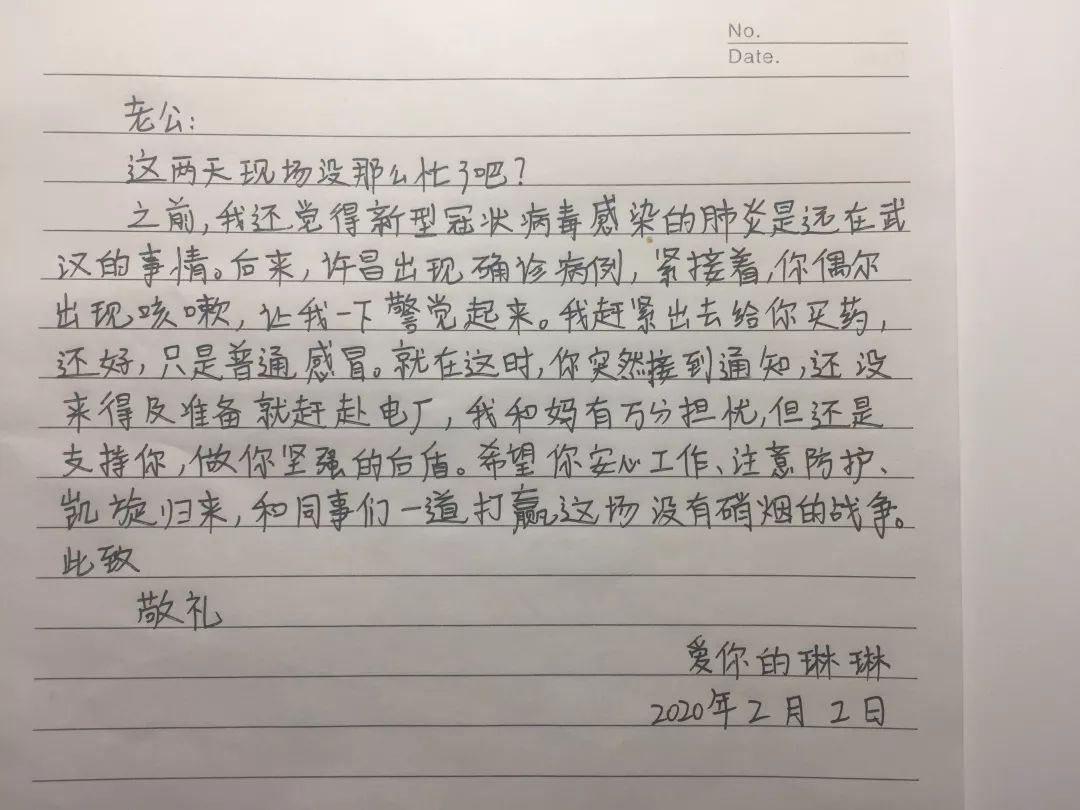 No.
Date.
老公:
这两天现场没那么忙了吧?
之前,我还觉得新型冠状病毒感染的肺炎是远在武
汉的事情。后来,许昌出现确诊病例,紧接着,你偶尔
出现咳嗽,让我一下警觉起来。我赶紧出去给你买药,
还好,只是普通感冒。就在这时,你突然接到通知,还没
来得及准备就赶赴电厂,我和妈有万分担忧,但还是
支持你,做你坚强的后盾。希望你安心工作、注意防护、
凯旋归来,和同事们一道打赢这场没有硝烟的战争。
此致
敬礼
爱你的琳琳
2020年2月2日